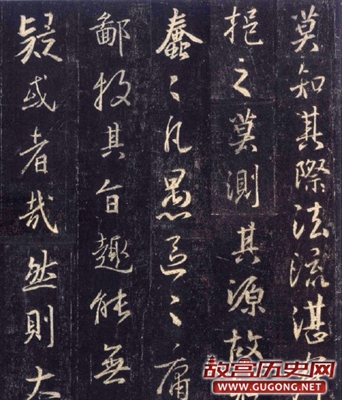 莫知其際法流湛
挹之莫測其源故
蠢々凡愚區々庸
鄙投其旨趣能無
疑或者哉然則大
故宫历史网
WWW.GUGONG.NET